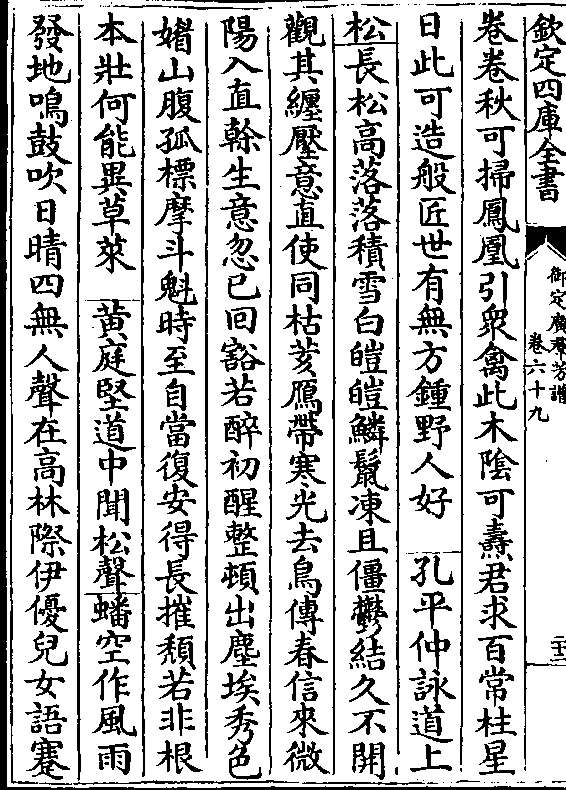 欽定四庫全書
御定廣羣芳譜
卷六十九
卷卷秋可掃鳳凰引衆禽此木陰可燾君求百常柱星
日此可造般匠世有無方鍾野人好　孔平仲詠道上
松長松高落落積雪白皚皚鱗鬣凍且僵鬱結久不開
觀其纏壓意直使同枯荄鴈帶寒光去鳥傳春信來微
陽入直榦生意忽已回豁若醉初醒整頓出塵埃秀色
媎山腹孤標摩斗魁時至自當復安得長摧頽若非根
本壯何能異草萊　黄庭堅道中聞松聲蟠空作風雨
發地鳴鼓吹日晴四無人聲在高林際伊優兒女語蹇